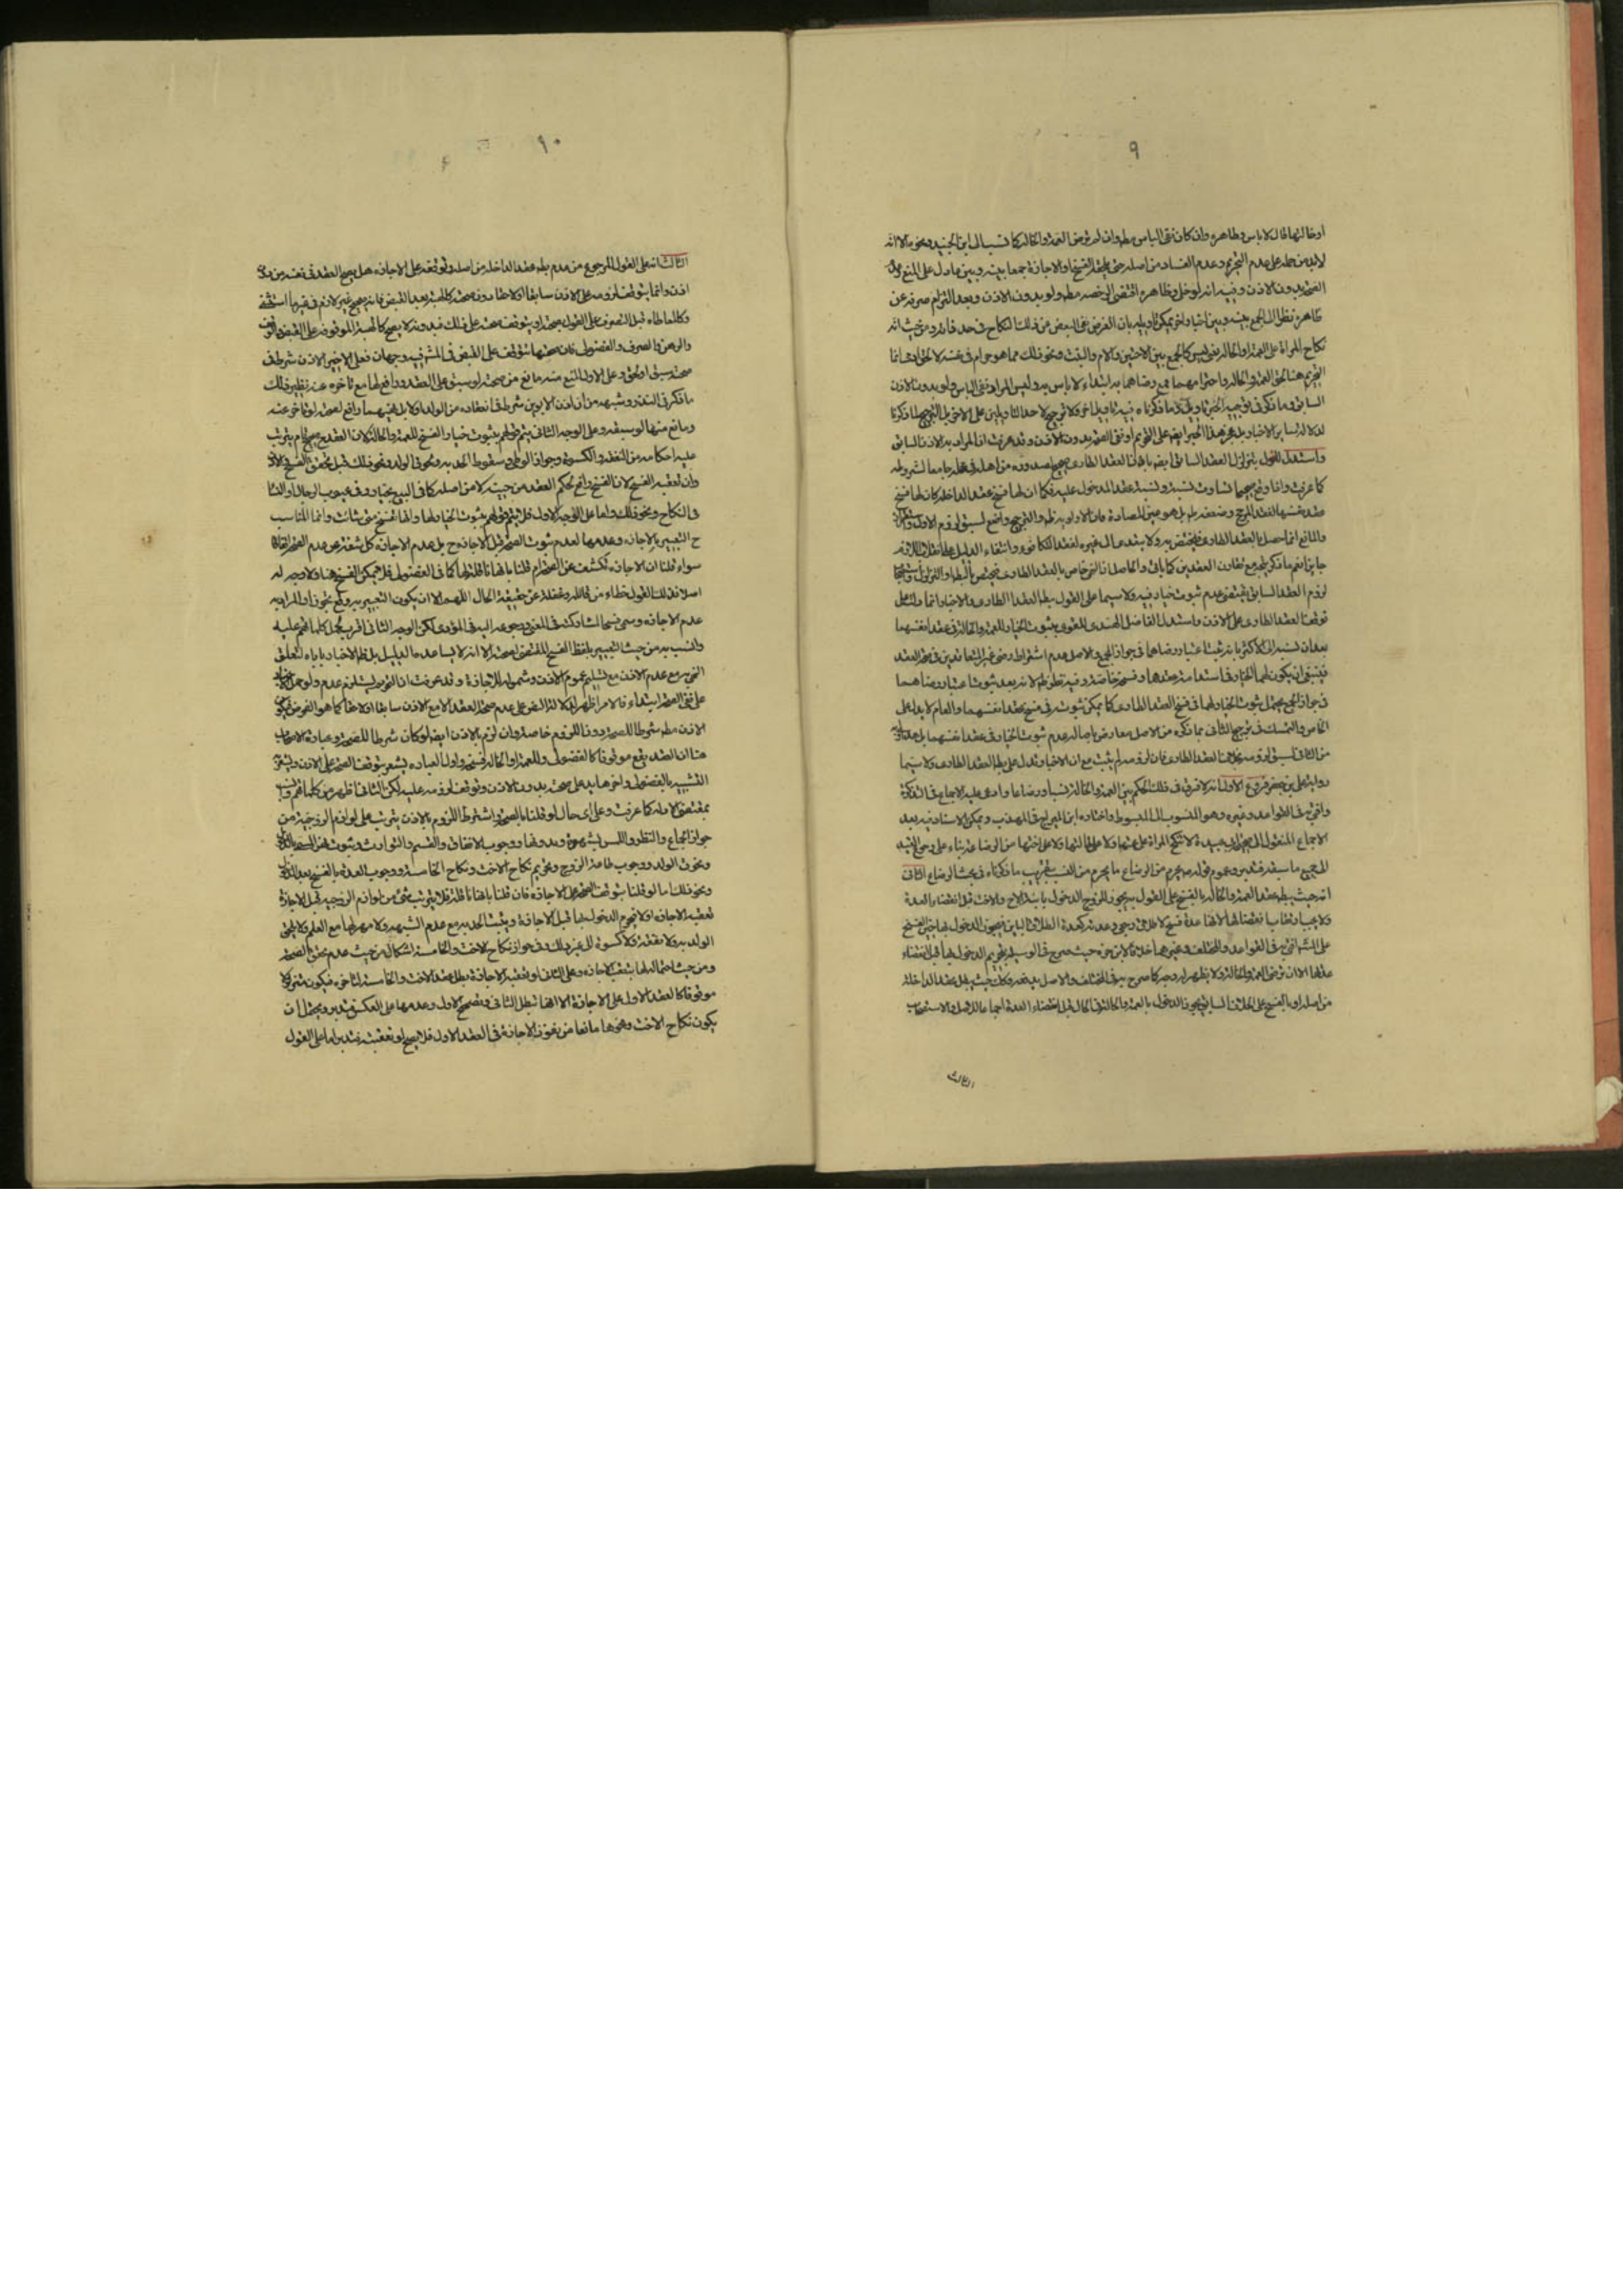 ٩
او خالتها قال لا باس وظاهره وان كان نفى الباس مطم وان لم ترض العمة والخالة كما نسب الى ابن الجنيد ونحوه الا انه
لابد من حمله على عدم التحريم وعدم الفساد من اصله حتى يلحقه الفسخ او الاجازة جمعا بينه وبين ما دل على المنع
الصحة بدون الاذن وفيه انه لو خلى وظاهره اقتضى الرخصة مطم ولو بدون الاذن وبعد التزام صرفه عن
ظاهره نظرا الى الجمع بينه وبين اخبار اخر يمكن تاويله بان الغرض نفى البعض عن ذلك النكاح في حد ذاته من حيث انه
نكاح المراة على العمة او الخالة يعنى ليس كالجمع بين الاختين والام والبنت ونحو ذلك مما هو حرام في نفسه لا لحق
التحريم هنا لحق العمة والخالة واحترامهما فمع رضاهما به ابتداء لا باس به وليس المراد نفى الباس ولو بدون الاذن
السابق وما ذكر في توجيه الخبر تاويل وما ذكرناه فيه تاويل اخر ولا ترجيح لاحد التاويلين على الاخر بل الترجيح لما ذكرنا
لدلالة ساير الاخبار بل وهذا الخبر ايضا على التحريم او نفى الصحة بدون الاذن وقد عرفت ان المراد به الاذن السابق
واستدل للقول بتزلزل العقد السابق ايضم بان العقد الطارى صحيح لصدوره من اهله في محله جامعا لشروطه
كما عرفت واذا وقع صحيحا تساوت نسبته ونسبة عقد المدخول عليه فكما ان لها فسخ عقد الداخلة كان لها فسخ
عقد نفسها لفقد المرجح وضعفه ظم بل هو عين المصادرة فان الاولوية ظم والترجيح واضح لسبق لزوم الاول
والمانع انما حصل بالعقد الطارى فيختص به ولا يتعدى الى غيره لفقد التكافؤ وانتفاء الدليل على
جايز نعم ما ذكر يتجه مع تقارن العقدين كما ياتى والحاصل ان النهى خاص بالعقد الطارى فيختص بالبطلان او التزلزل
لزوم العقد السابق يقتضى عدم ثبوت خيار فيه ولا سيما على القول ببطم العقد الطارى والاخبار انما دلت على
توقف العقد الطارى على الاذن واستدل الفاضل الهندى للقوى بثبوت الخيار للعمة والخالة في عقد انفسهما
بعد ان نسبه الى الاكثر بانه ثبت اعتبار رضاهما في جواز الجمع والاصل عدم اشتراط رضى غير المتعاقدين في صحة العقد
فينبغى ان يكون لهما الخيار في استدامة عقدهما وفسخه خاصة وفيه نظر ظم لانه بعد ثبوت اعتبار رضاهما
في جواز الجمع يحتمل ثبوت الخيار لهما في فسخ العقد الطارى كما يمكن ثبوته في فسخ عقد انفسهما والعام لا يدل على
الخاص والتمسك في ترجيح الثانى بما ذكره من الاصل معارض باصالة عدم ثبوت الخيار في عقد انفسهما بل هذا اولى
من الثانى لسبق لزومه بخلاف العقد الطارى فان لزومه لم يثبت مع ان الاخبار تدل على بطم العقد الطارى ولا سيما
رواية على بن جعفر فروع الاول انه لا فرق في ذلك الحكم بين العمة والخالة نسبا ورضاعا وادعى عليه الاجماع في التذكرة
وافتى به في القواعد وغيره وهو المنسوب الى المبسوط واختاره ابن البراج في المهذب ويمكن الاستناد فيه بعد
الاجماع المنقول الى صحيحة ابى عبيدة لا تنكح المراة على عمتها ولا على خالتها ولا على اختها من الرضاعة بناء على رجوع القيد
الى جميع ما سبقه فتدبر وعموم قوله يحرم من الرضاع ما يحرم من النسب بتقريب ما ذكرناه في بحث الرضاع الثانى
انه حيث يبطم عقد العمة والخالة بالفسخ على القول به يجوز للزوج الدخول بابنة الاخ والاخت قبل انقضاء العدة
ولا يجب ارتقاب انقضائها لانها عدة فسخ لا طلاق رجعى وعدته كعدة الطلاق الباين فيجوز الدخول بها حين الفسخ
على ما افتى به في القواعد والمختلف وغيرهما خلافا لابن حمزه حيث صرح في الوسيلة بتحريم الدخول بها قبل انقضاء
عدتها الا ان ترضى العمة والخالة ولا يظهر له وجه كما صرح به في المختلف والاصل يدفعه وكك حيث يبطل عقد الداخلة
من اصله او بالفسخ على الخلاف السابق يجوز الدخول بالعمة والخالة في الحال قبل انقضاء العدة اجماعا للاصل والاستصحاب
الثالث
١٠
الثالث انه على القول المرجوع من عدم بطم عقد الداخلة من اصله وتوقفه على الاجازة هل يصح العقد في نفسه من دون
اذن وانما يتوقف لزومه على الاذن سابقا او لاحقا دون صحته كالهبة بعد القبض فانه صحيح غير لازم في غير ما استثنى
وكالمعاطاه قبل التصرف على القول بصحتها او يتوقف صحته على ذلك فبدونه لا يصح كالهبة الموقوفة على القبض والوقف
والرهن والصرف والفضولى فان صحتها تتوقف على القبض في الثمن فيه وجهان فعلى الاخير الاذن شرط في
صحته سبق او لحق وعلى الاول المنع منه مانع من صحته لو سبق على العقد ودافع لها مع تاخره عنه نظير ذلك
ما ذكر في النذر وشبهه من ان اذن الابوين شرط في انعقاده من الولد او لا بل نهيهما دافع لصحته لو تاخر عنه
ومانع منها لو سبقه وعلى الوجه الثانى يتم قولهم بثبوت خيار الفسخ للعمة والخالة لان العقد ح صحيح تام يترتب
عليه احكامه من النفقه والكسوة وجواز الوطى وسقوط الحد به ولحوق الولد ونحو ذلك قبل تحقق الفسخ
وان تعقبه الفسخ لان الفسخ رافع لحكم العقد من حينه لا من اصله كما في البيع بخيار وفي عيوب الرجال والنسا
في النكاح ونحو ذلك واما على الوجه الاول فلا يتم قولهم بثبوت الخيار لها وانها تفسخ متى شائت وانما المناسب
ح التعبير بالاجازه وعدمها لعدم ثبوت الصحة قبل الاجازه ح بل عدم الاجازه كل شفه عن عدم الصحة اتفاقا
سواء قلنا ان الاجازه تكشف عن الصحة ام قلنا بانها ناقلة لها كما في الفضولى فلا يمكن الفسخ هنا ولا وجه له
اصلا فذلك القول خطاء من قائله وغفلة عن حقيقة الحال اللهم الا ان يكون التعبير به وقع تجوزا والمراد به
عدم الاجازه وسمى فسخا لمشاركته في المعنى ورجوعه اليه في المؤدى لكن الوجه الثانى اقرب بحمل كلماتهم عليه
وانسب به من حيث التعبير بلفظ الفسخ المقتضى لصحته الا انه لا يساعده الدليل بل ظم الاخبار ياباه لتعلق
النهى به مع عدم الاذن مع تسليم عموم الاذن وشموله للاجازة وقد عرفت ان النهى يستلزم عدم
على نفى الصحة ابتداء فالامر اظهر لدلالة النص على عدم صحة العقد الا مع الاذن سابقا او لاحقا كما هو الفرض فيكون
الاذن مطم شرطا للصحة دون اللزوم خاصة وان لزم بالاذن ايضا لو كان شرطا للصحة وعبارة الاصحاب
هنا ان العقد يقع موقوفا كالفضولى وللعمة او الخالة فسخه واول العباره يشعر بتوقف الصحة على الاذن ويشعر به
التشبيه بالفضولى واخرها يدل على صحته بدون الاذن وتوقف لزومه عليه لكن الثانى اظهر من كلماتهم وانسب
بمقتضى الادلة كما عرفت وعلى اى حال لو قلنا بالصحة واشتراط اللزوم بالاذن يترتب على لوازم الزوجية من
جواز الجماع والنظر واللمس بشهوة وبدونها ووجوب الانفاق والقسم والتوارث وثبوت
ولحوق الولد ووجوب طاعة الزوج وتحريم نكاح الاخت ونكاح الخامسة ووجوب العدة بالفسخ بعد الدخول
ونحو ذلك اما لو قلنا بتوقف الصحة على الاجازه فان قلنا بانها ناقلة فلا يترتب شئ من لوازم الزوجية قبل الاجازة
لعقبه الاجازه او لا فيحرم الدخول بها قبل الاجازة ويثبت الحد به مع عدم الشبهه ولا مهر لها مع العلم ولا يلحق
الولد به ولا نفقة ولا كسوة الى غير ذلك وفي جواز نكاح الاخت والخامسة اشكال من حيث عدم تحقق الصحة
ومن حيث احتمالها بتعقب الاجازه وعلى الثانى لو تعقبه الاجازة بطل عقد الاخت والخامسة لتاخره فيكون متزلزلا
موقوفا كالعقد الاول على الاجازة الا انها تبطل الثانى وتصحح الاول وعدمها على العكس فتدبر ويحتمل ان
يكون نكاح الاخت ونحوها مانعا من نفوذ الاجازة في العقد الاول فلا يصح لو تعقبته فتدبر اما على القول